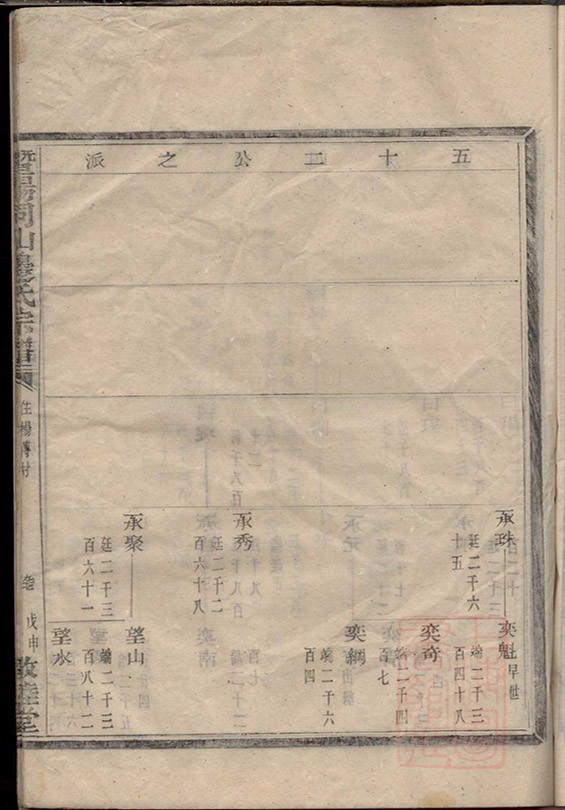 五十二公之派
承珠
廷二千六
十五
奕魁
早世
端二千三
百四十八
奕奇
端二千四
百七
承元
奕綱
端二千六
百四
承秀
廷二千二
百六十八
承聚
廷二千三
百六十一
望山
端二千三
百八十二
望水
暨陽同山邊氏宗譜
住楊傅村
戊申
敦睦堂